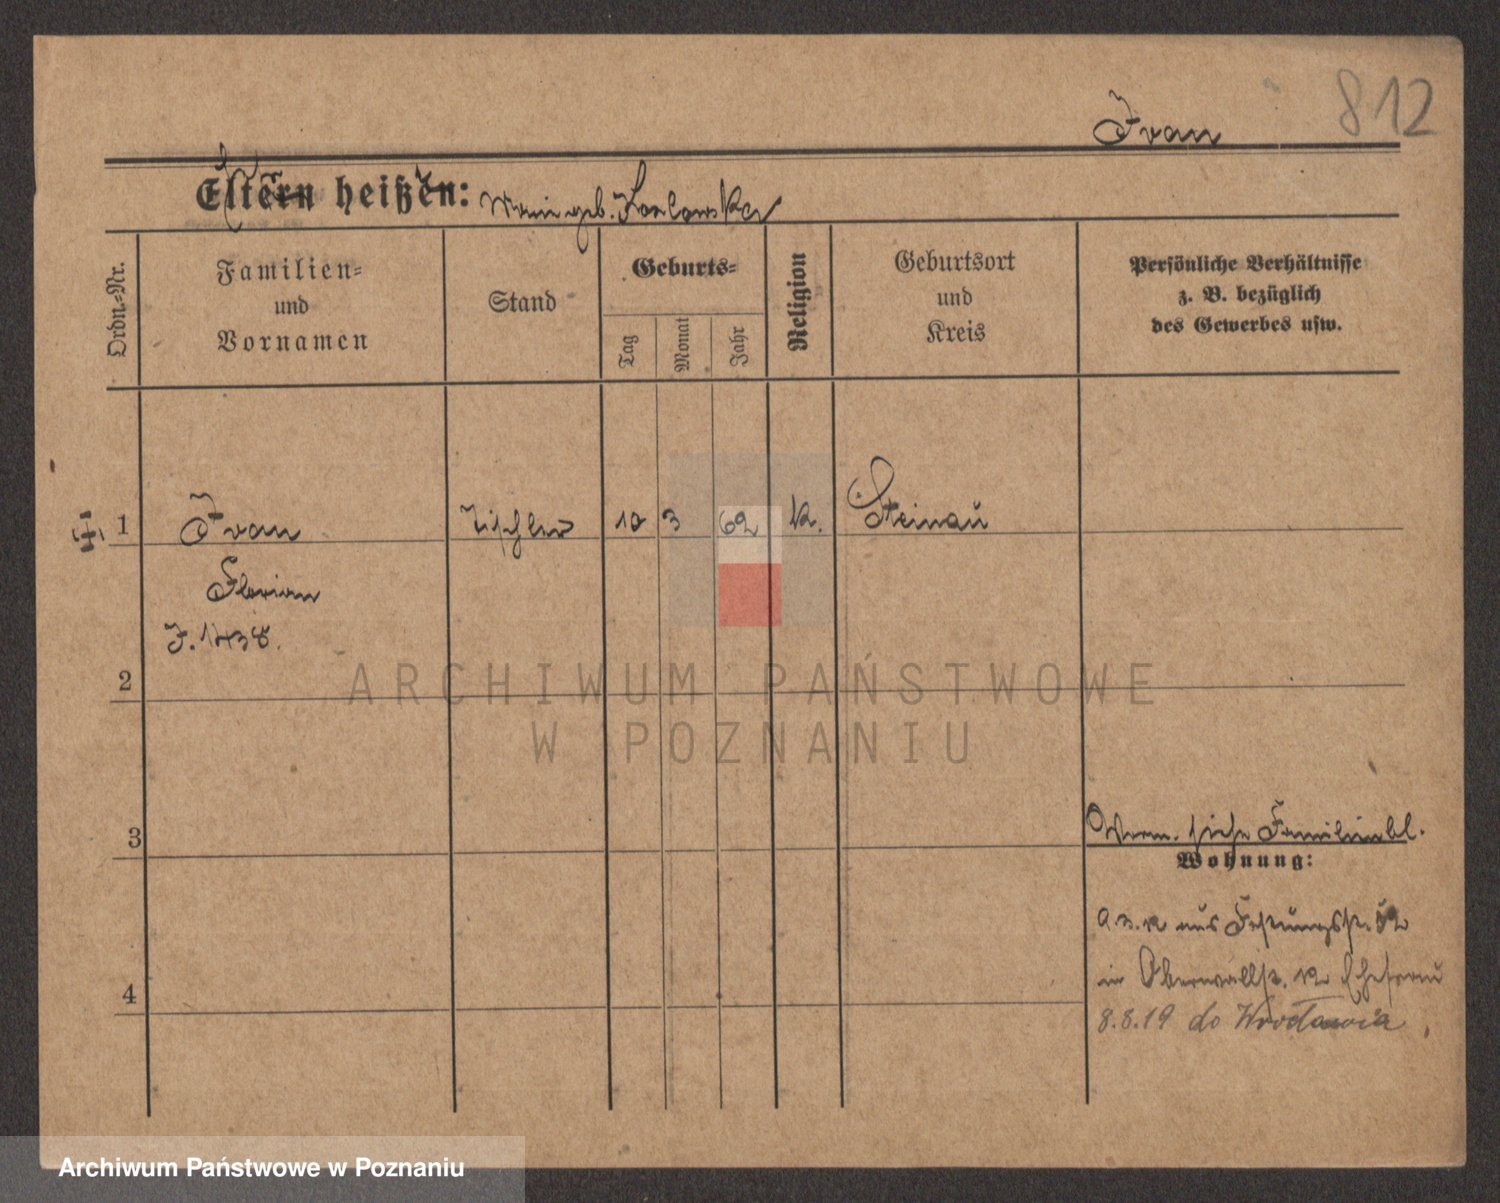 812
Ivan
Eltern heißen: geb. Koslowska
Ordn.-Nr.
Familien-
und
Vornamen
Stand
Geburts-
Tag
Monat
Jahr
Religion
Geburtsort
und
Kreis
Persönliche Verhältnisse
z. B. bezüglich
des Gewerbes usw.
1 Ivan Tischler 10 3 62 k. Steinau
Florian
J. 1438.
2
3
Verm. siehe Familienbl.
Wohnung:
aus Festungsstr.
4
in Oberwallstr. Ehefrau
8.8.19 do Wrocławia
ARCHIWUM PAŃSTWOWE
W POZNANIU
Archiwum Państwowe w Poznaniu